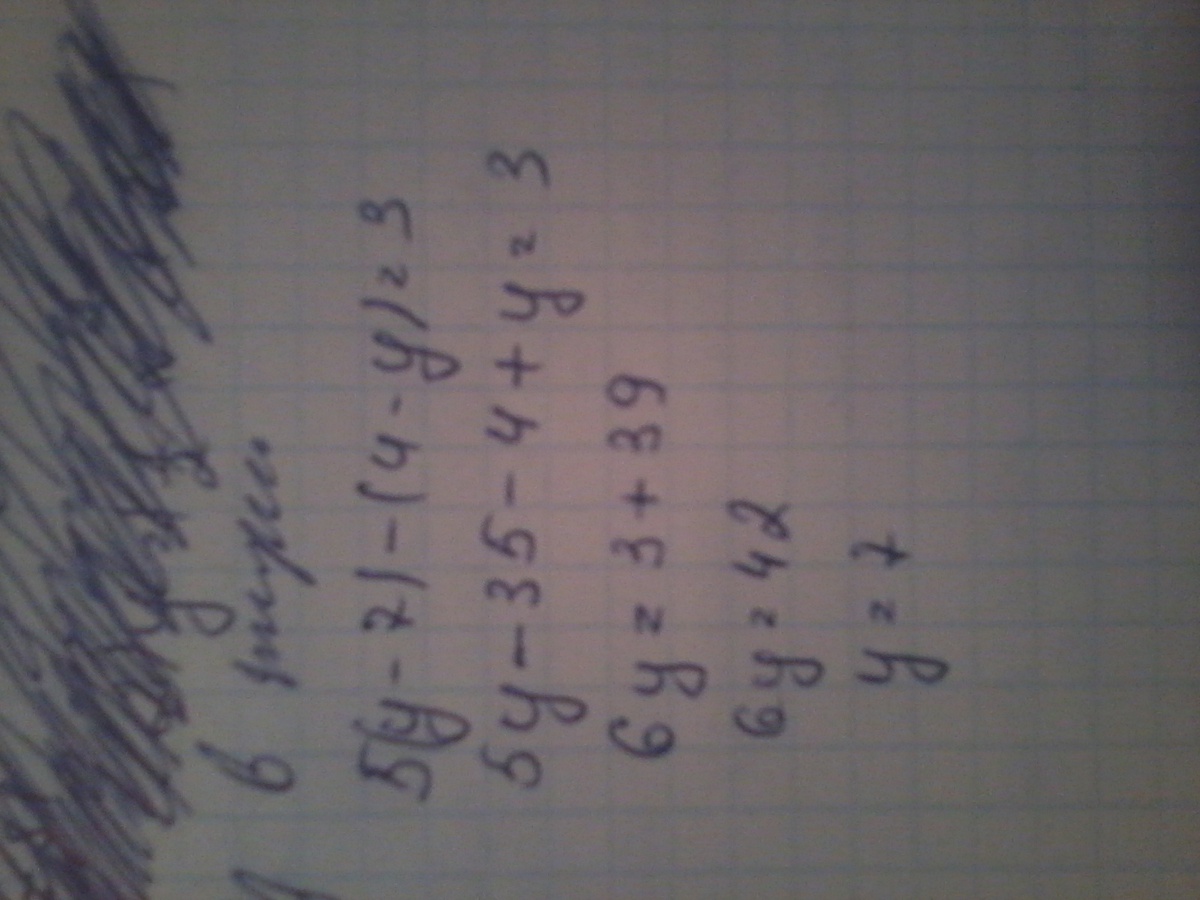 в
5(y-7)-(4-y)=3
5y-35-4+y=3
6y=3+39
6y=42
y=7